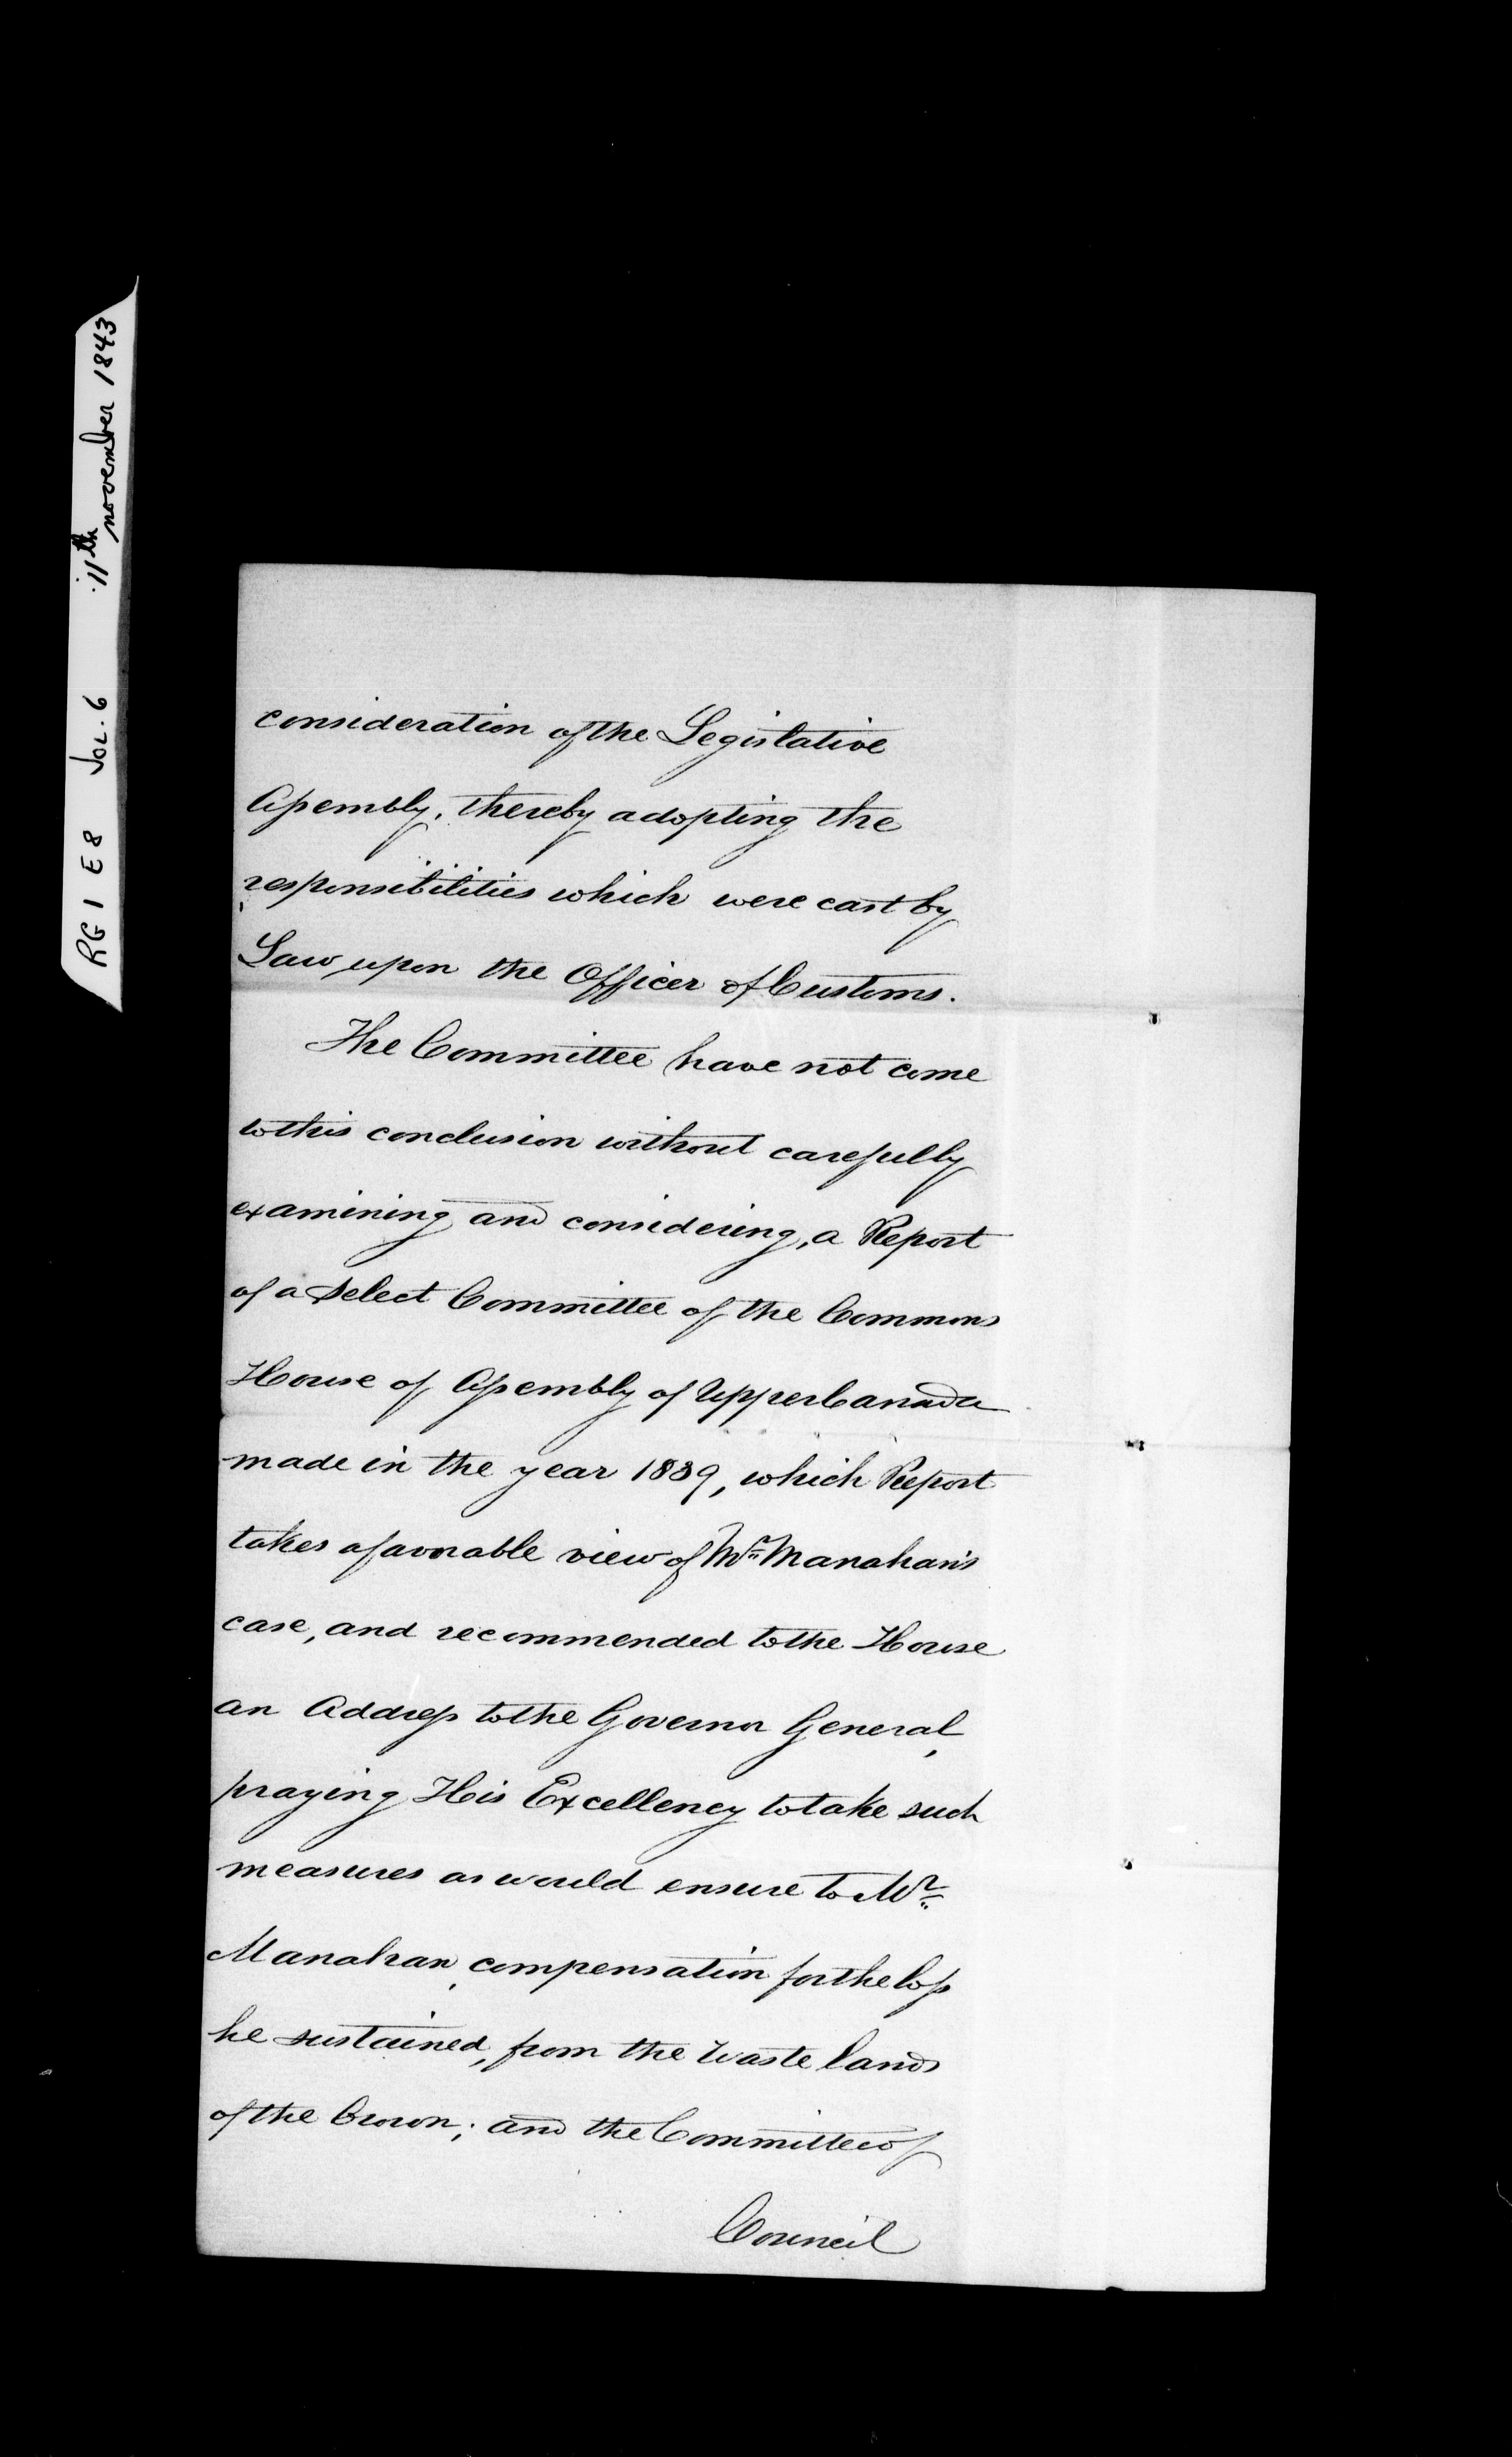 RG 1 E8 Vol. 6 11th november 1843
consideration of the Legislative
Assembly, thereby adopting the
responsibilities which were cast by
Law upon the Officer of Customs.
The Committee have not come
to this conclusion without carefully
examining and considering, a Report
of a Select Committee of the Commons
House of Assembly of Upper Canada
made in the year 1839, which Report
takes a favorable view of Mr. Manahan's
case, and recommended to the House
an Address to the Governor General,
praying His Excellency to take such
measures as would ensure to Mr.
Manahan, compensation for the loss
he sustained, from the Waste lands
of the Crown; and the Committee of
Council